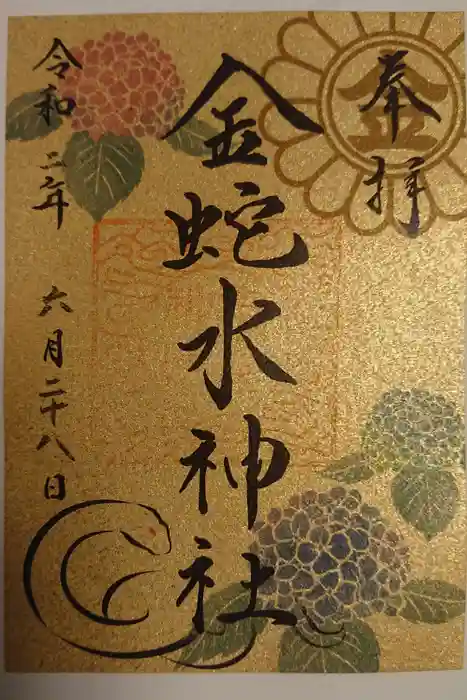 奉拝
金
金蛇水神社
令和二年 六月二十八日